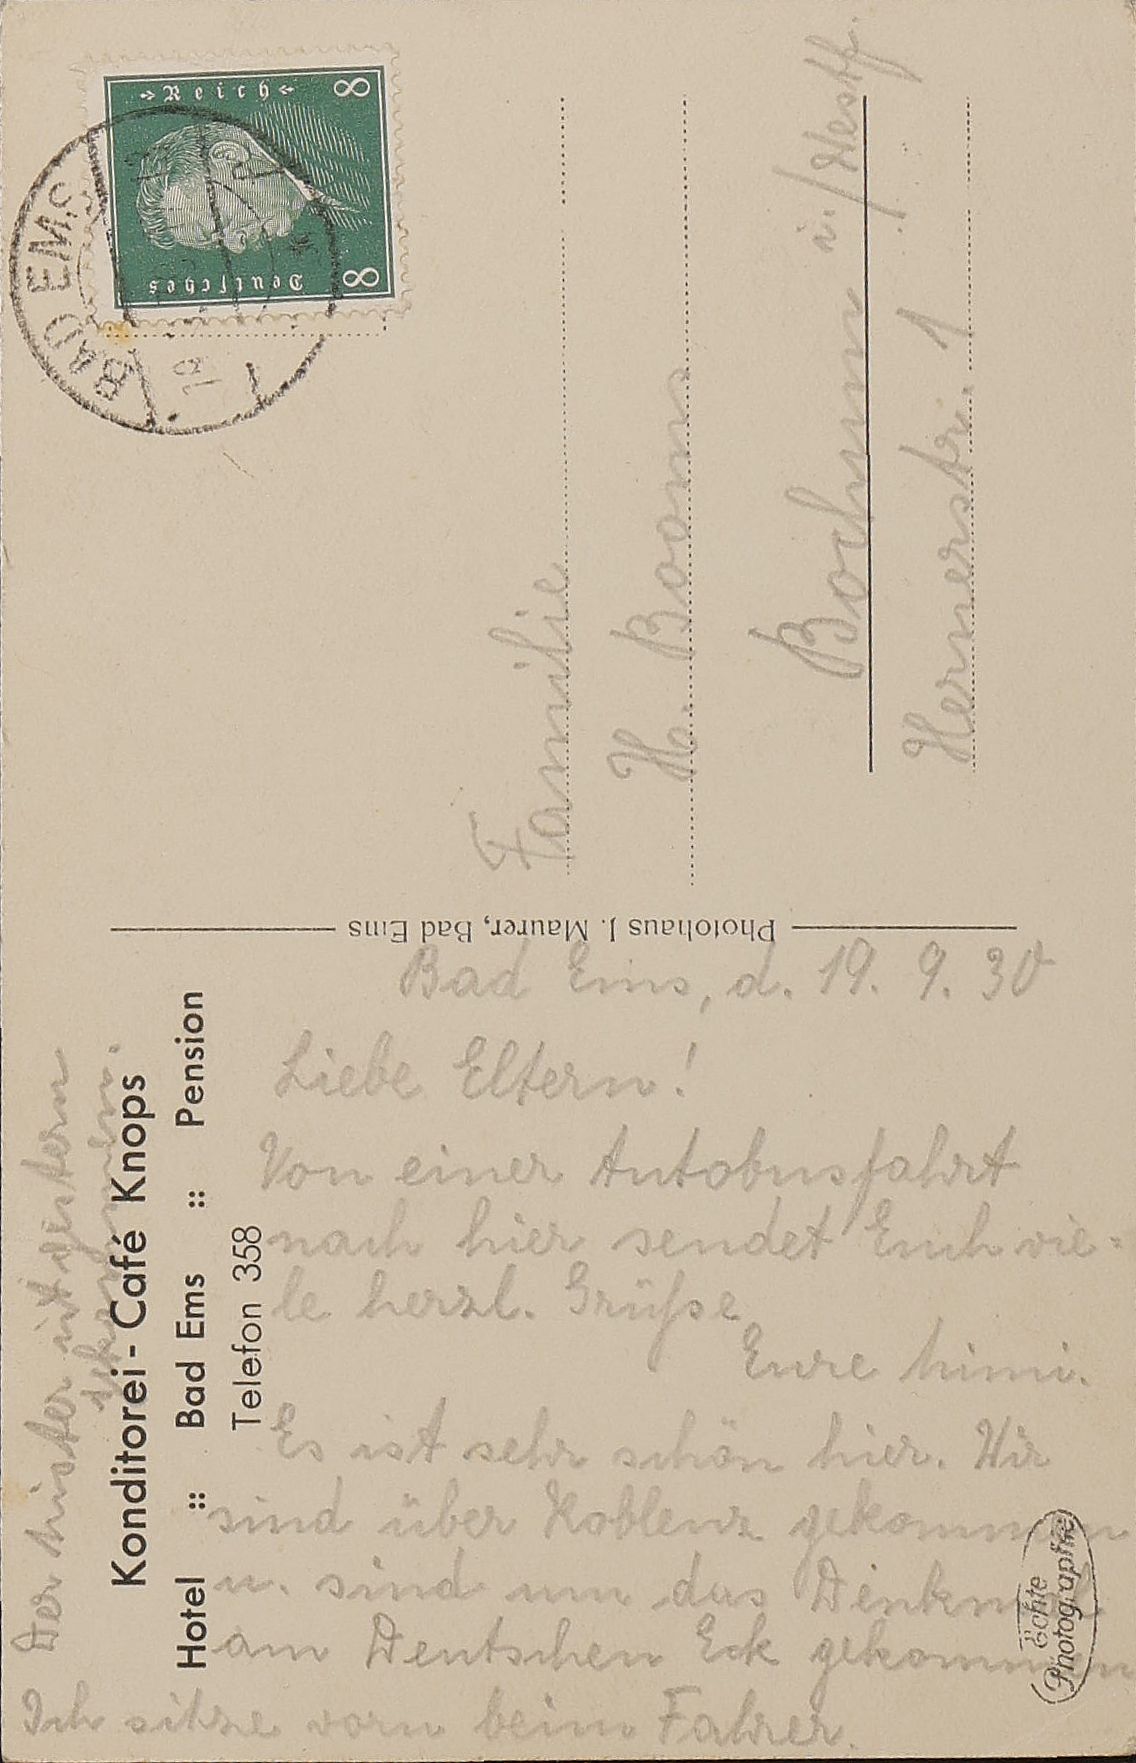 Deutsches Reich
8 8
BAD EMS
Familie
H. Booms
Bochum i./Westf.
Hernerstr. 1
Photohaus J. Maurer, Bad Ems
Konditorei - Café Knops
Hotel :: Bad Ems :: Pension
Telefon 358
Bad Ems, d. 19. 9. 30
Liebe Eltern!
Von einer Autobusfahrt
nach hier sendet Euch vie=
le herzl. Grüße
Eure Mimi.
Es ist sehr schön hier. Wir
sind über Koblenz gekommen
u. sind um das Denkmal
am Deutschen Eck gekommen
Ich sitze vorn beim Fahrer.
Der Mister ist gestern
gekommen.
Echte
Photographie